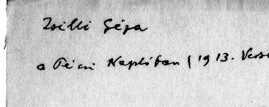 Zsilli Géza
a Pécsi Naplóban (1913. Vers